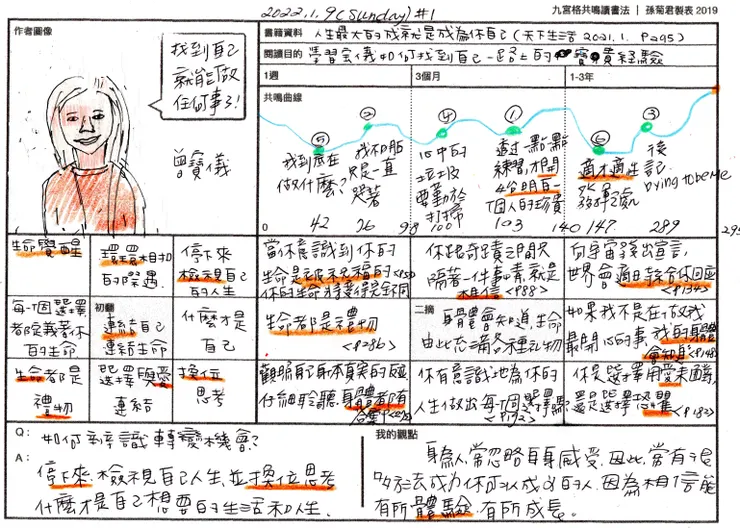 2022.1.9(Sunday)#1
九宮格共鳴讀書法 | 孫菊君製表 2019
作者圖像
找到自己
就能做
任何事了!
曾寶儀
書籍資料 人生最大的成就是成為你自己(天下生活 2021.1. P295)
閱讀目的 學習宝儀如何找到自己一路上的寶貴經驗
1週
3個月
1-3年
共鳴曲線
⑤
②
④
①
⑥
③
我到底在
做什麼?
我不能
只是一直
哭著
心中的
要勤於
打掃
透过一點點
練習,才開
個人的珍貴
適才適性
發揮之處
後
記
Dying to be Me
0
42
26
98
100
103
140
147
289
295
生命覺醒
環環相扣
的際遇
停下來
檢視自己
的人生
每一個選擇
都定義著你
的生命
初翻
連結自己
連結生命
什麼才是
自己
生命都是
禮物
選擇與愛
連結
換位
思考
當你意識到你的
生命是被祝福的
你的生命才變得完全不同
你跟奇蹟之間只
隔著一件事情,就是
相信<P88>
向宇宙發出宣言,
世界會適時給你回应
<P134>
生命都是禮物
<P286>
二摘
身體會知道,生命
由此充滿各種礼物
如果我不是在做我
最開心的事,我的身體
會知道<P148>
觀照那身体真實的反应
仔細聆聽身體所有
你有意識地為你的
人生做出每一個選擇點
<P192>
你是選擇用愛來面對,
還是選擇恐懼
<P182>
Q:
如何辨識轉變機會?
A:
停下來檢視自己人生,並換位思考
什麼才是自己想要的生活和人生.
我的觀點
身為人常忽略自身感受,因此,常有很
多方法去成为你可以成为的人,因為相信能
有所體驗.有所成長.